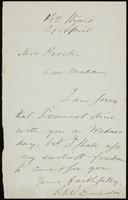 29 April
Mrs Procter
Dear Madam,
I am sorry
that I cannot dine
with you on Wednes
day, but I shall use
my earliest freedom
to come & see you.
Yours faithfully,
R. W. Emerson